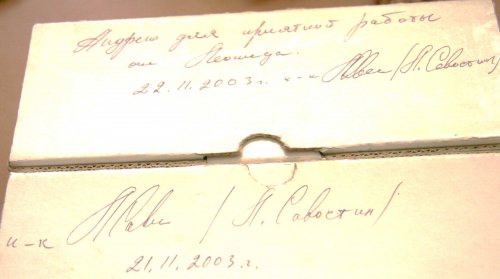 Андрею для приятной работы
от Леонида.
22.11.2003г. (Л. Савостин)
и-к / Л. Савостин /
21.11.2003.г.